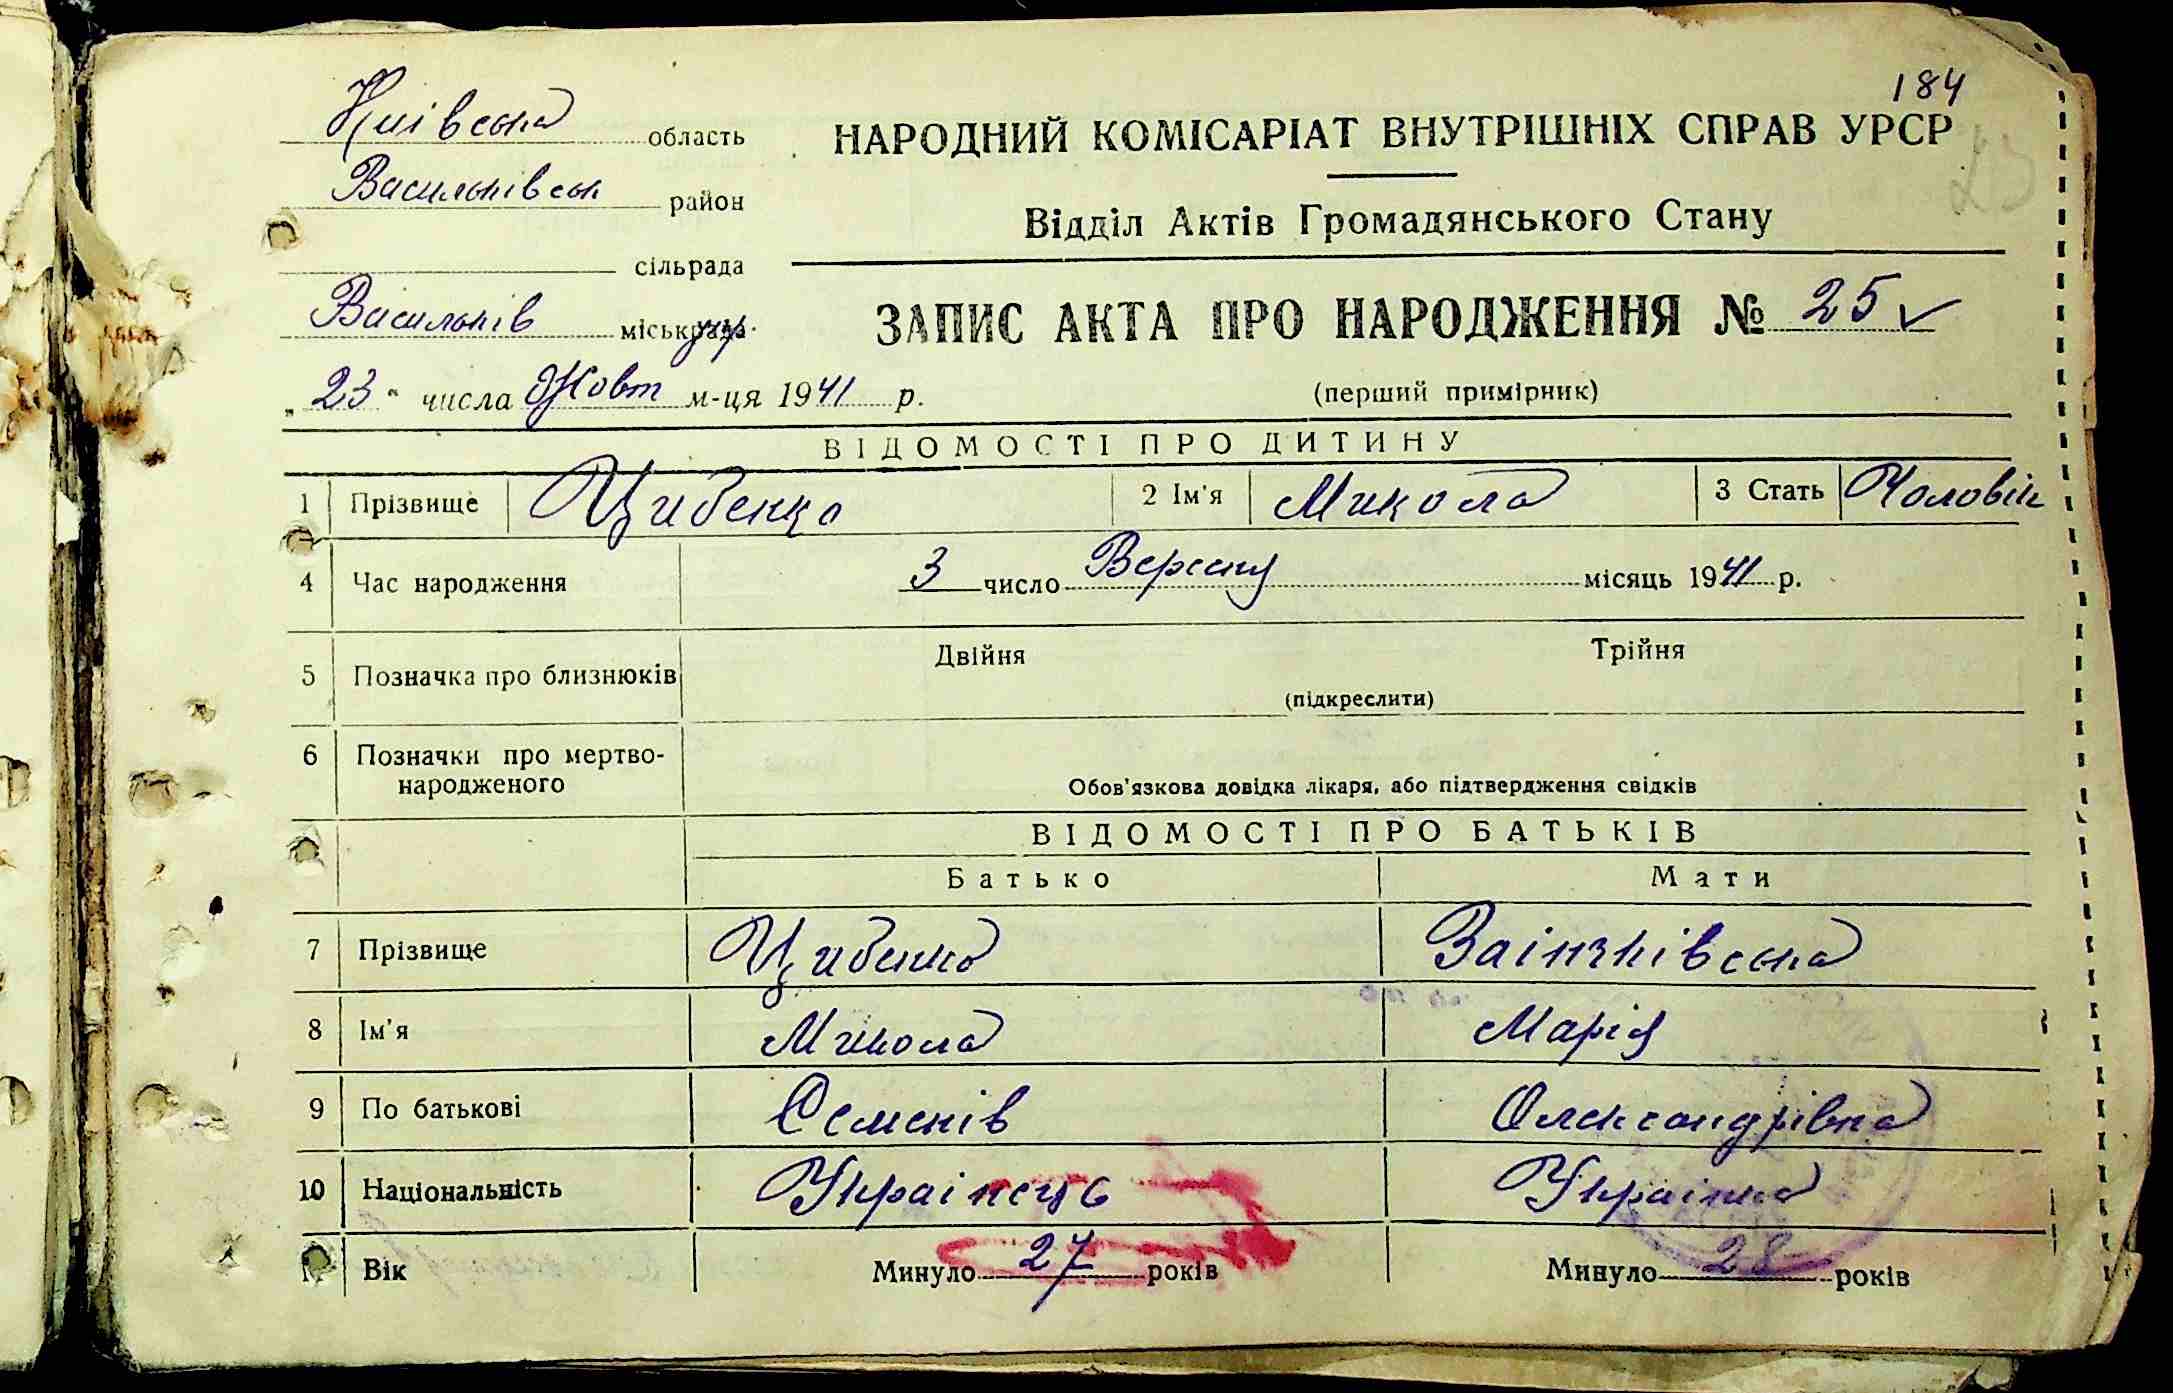 184
Київська область
НАРОДНИЙ КОМІСАРІАТ ВНУТРІШНІХ СПРАВ УРСР
Васильківськ район
23
Відділ Актів Громадянського Стану
сільрада
Васильків міськрада
ЗАПИС АКТА ПРО НАРОДЖЕННЯ № 25
„23“ числа Жовт м-ця 1941 р.
(перший примірник)
ВІДОМОСТІ ПРО ДИТИНУ
1 Прізвище Цибенко 2 Ім'я Микола 3 Стать Чоловік
4 Час народження 3 число Вересня місяць 1941 р.
5 Позначка про близнюків Двійня Трійня
(підкреслити)
6 Позначки про мертво-
народженого
Обов'язкова довідка лікаря, або підтвердження свідків
ВІДОМОСТІ ПРО БАТЬКІВ
Батько Мати
7 Прізвище Цибенко
8 Ім'я Микола Марія
9 По батькові Семенів Олександрівна
10 Національність Українець Українка
11 Вік Минуло 27 років Минуло 28 років